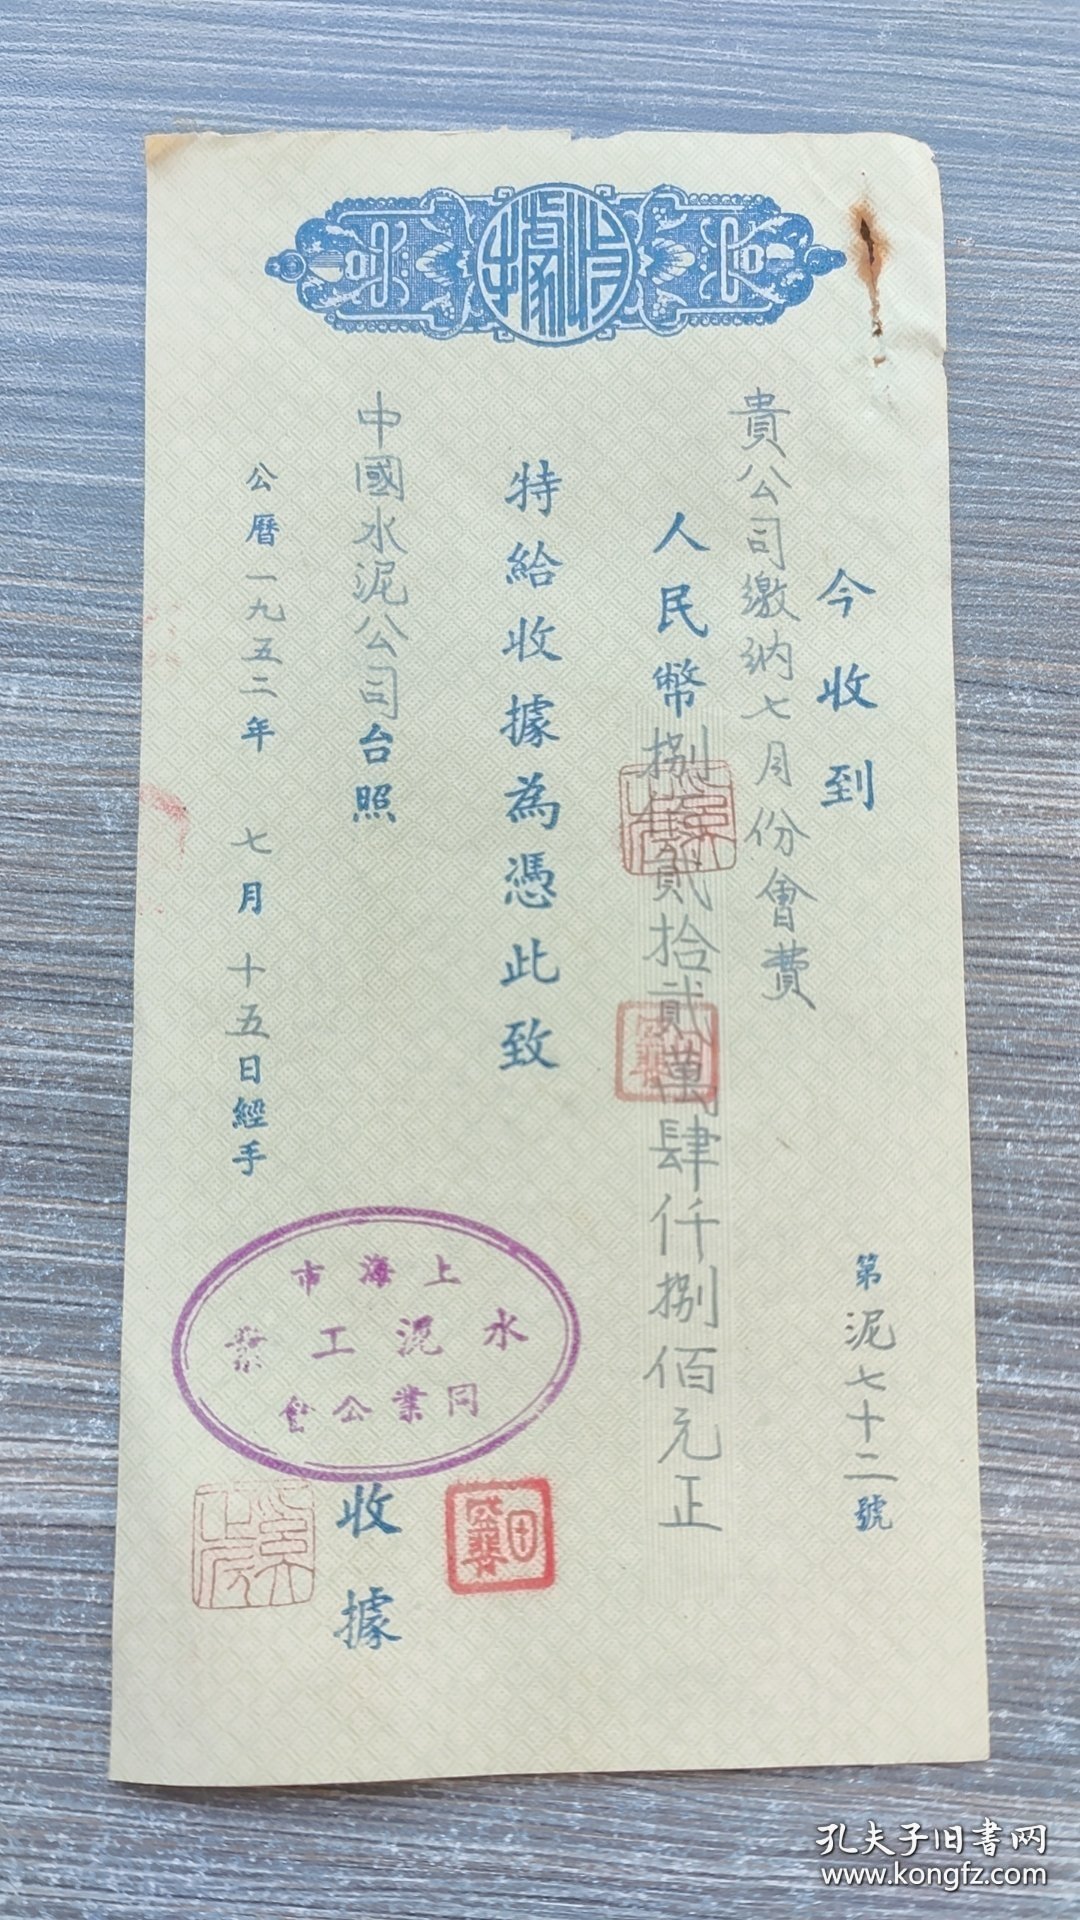 收據
今收到
第泥七十二號
貴公司繳納七月份會費
人民幣捌佰貳拾貳萬肆仟捌佰元正
特給收據為憑此致
中國水泥公司台照
公曆一九五二年七月十五日經手
上海市
水泥工業
同業公會
收據
孔夫子旧书网
www.kongfz.com